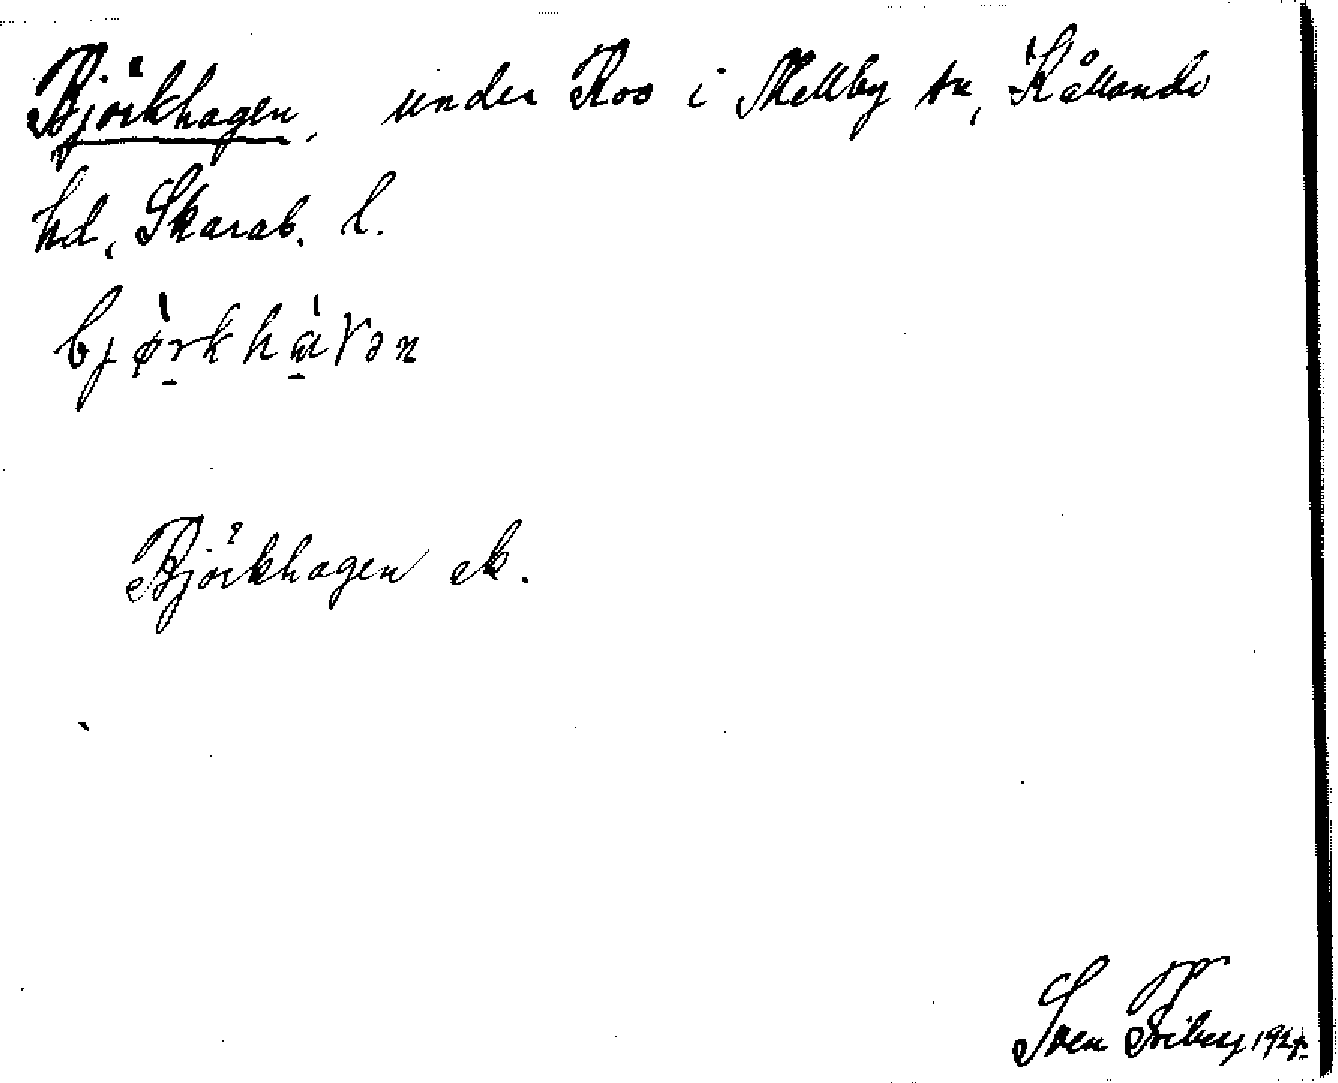 Björkhagen, under Roo i Mellby sn, Kållands
hd, Skarab. l.
bjørkhaɣən
Björkhagen ek.
Sven Friberg 1924